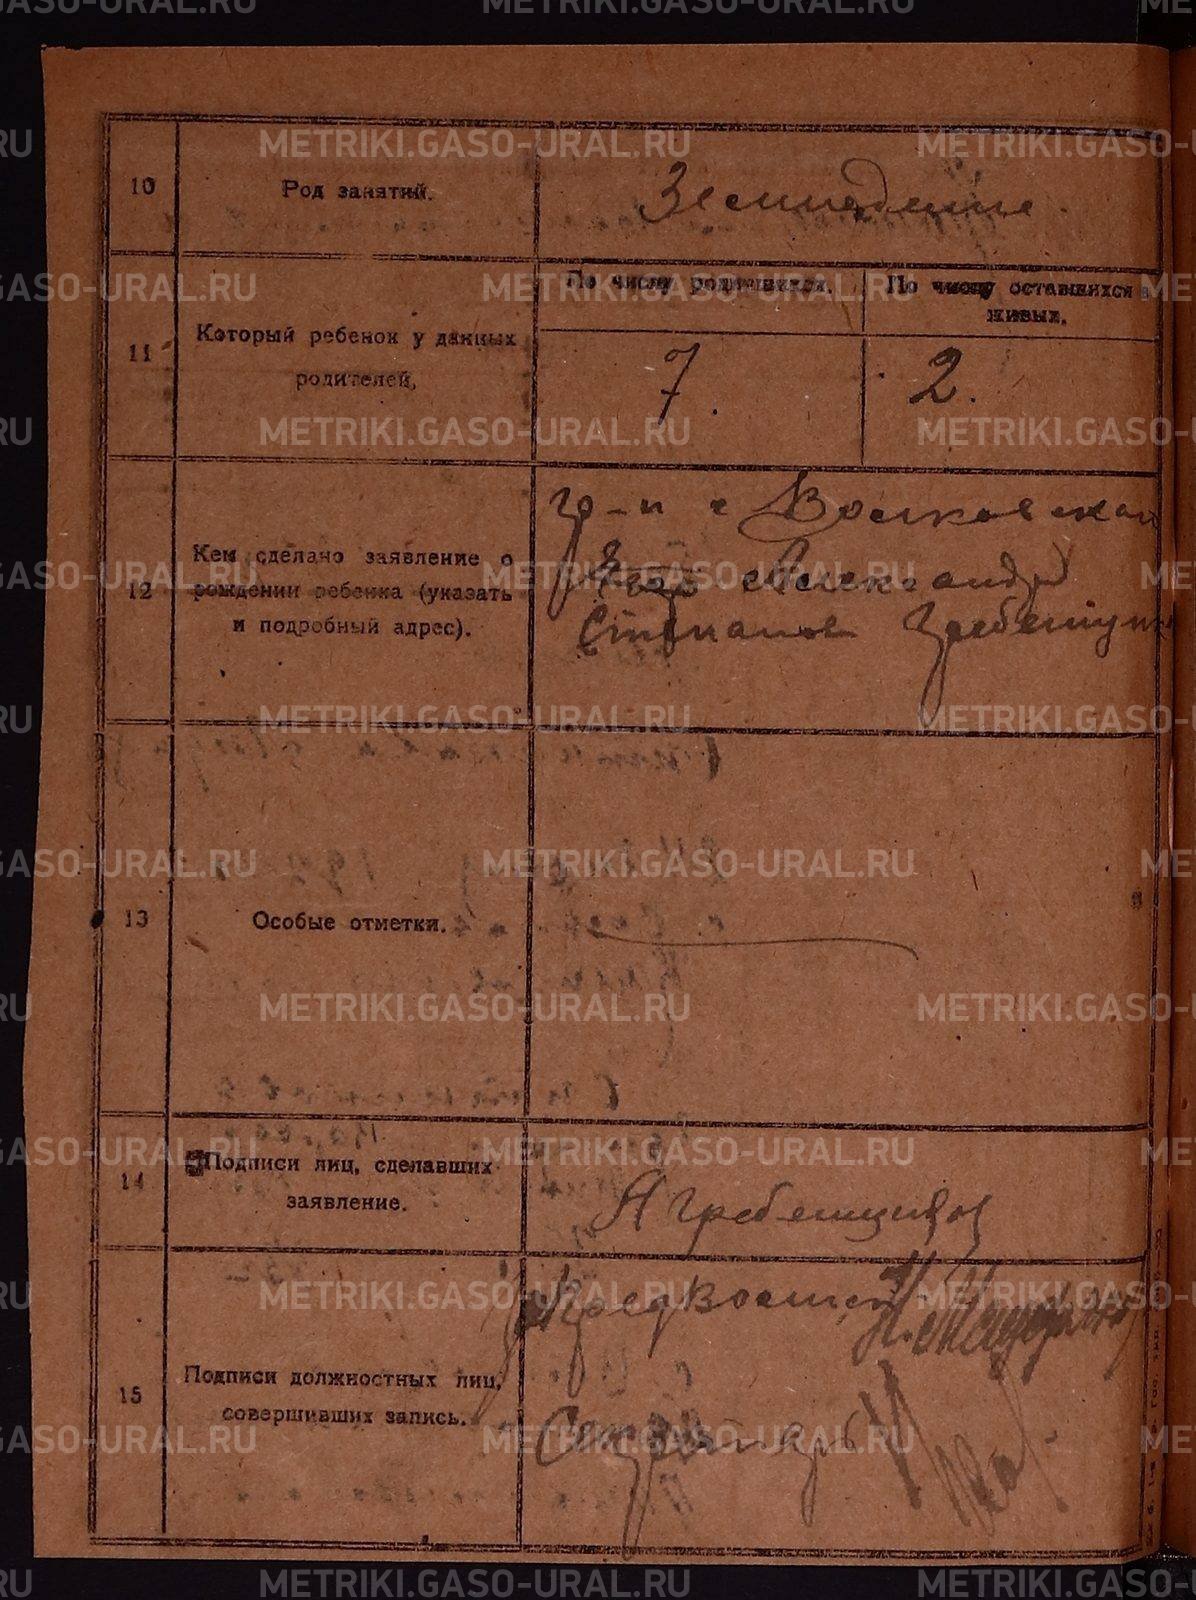 10
Род занятий.
Земледелие.
11
Который ребенок у данных
родителей,
По числу родившихся.
По числу оставшихся в
живых.
7.
2.
12
Кем сделано заявление о
рождении ребенка (указать
и подробный адрес).
гр-н с Волковская
Александр
Степанов Гребенщик
13
Особые отметки.
14
Подписи лиц, сделавших
заявление.
А Гребенщиков
15
Подписи должностных лиц,
совершивших запись.
Секретарь
METRIKI.GASO-URAL.RU